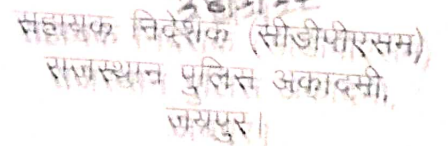 सहायक निदेशक (सीडीपीएसम)
राजस्थान पुलिस अकादमी,
जयपुर।